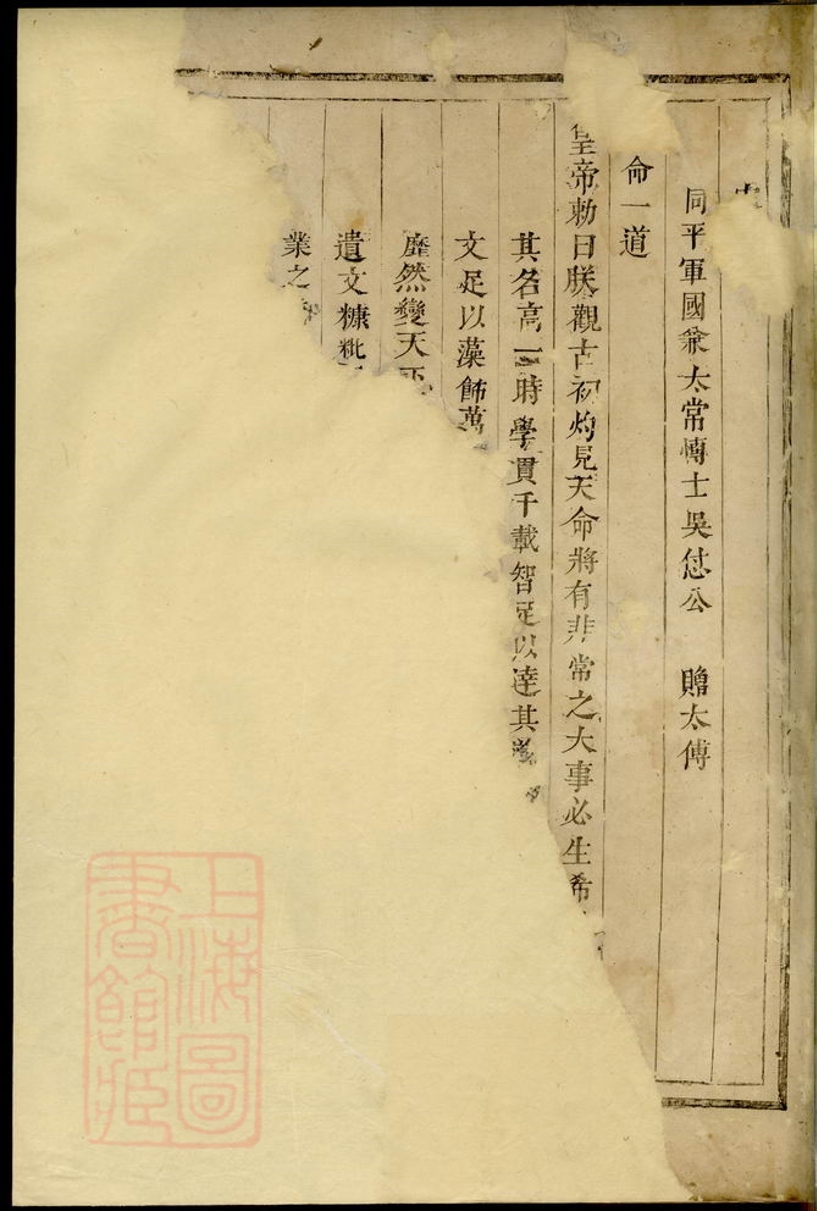 同平軍國兼太常博士吳愆公　贈太傅
命一道
皇帝勅曰朕觀古初灼見天命將有非常之大事必生希
其名高一時學貫千載智足以達其
文足以藻飾萬
靡然變天下
遺文糠粃
業之
上海圖書館藏